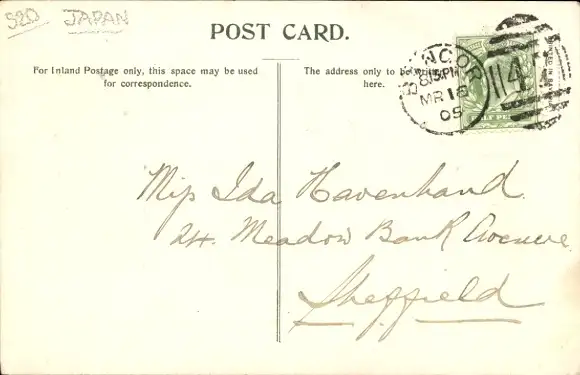 520 JAPAN
POST CARD.
For Inland Postage only, this space may be used
for correspondence.
The address only to be
here.
BANGOR
8.15PM
MR 18
05
114
HALF PENNY
Miss Ida Havenhand.
24. Meadow Bank Avenue
Sheffield